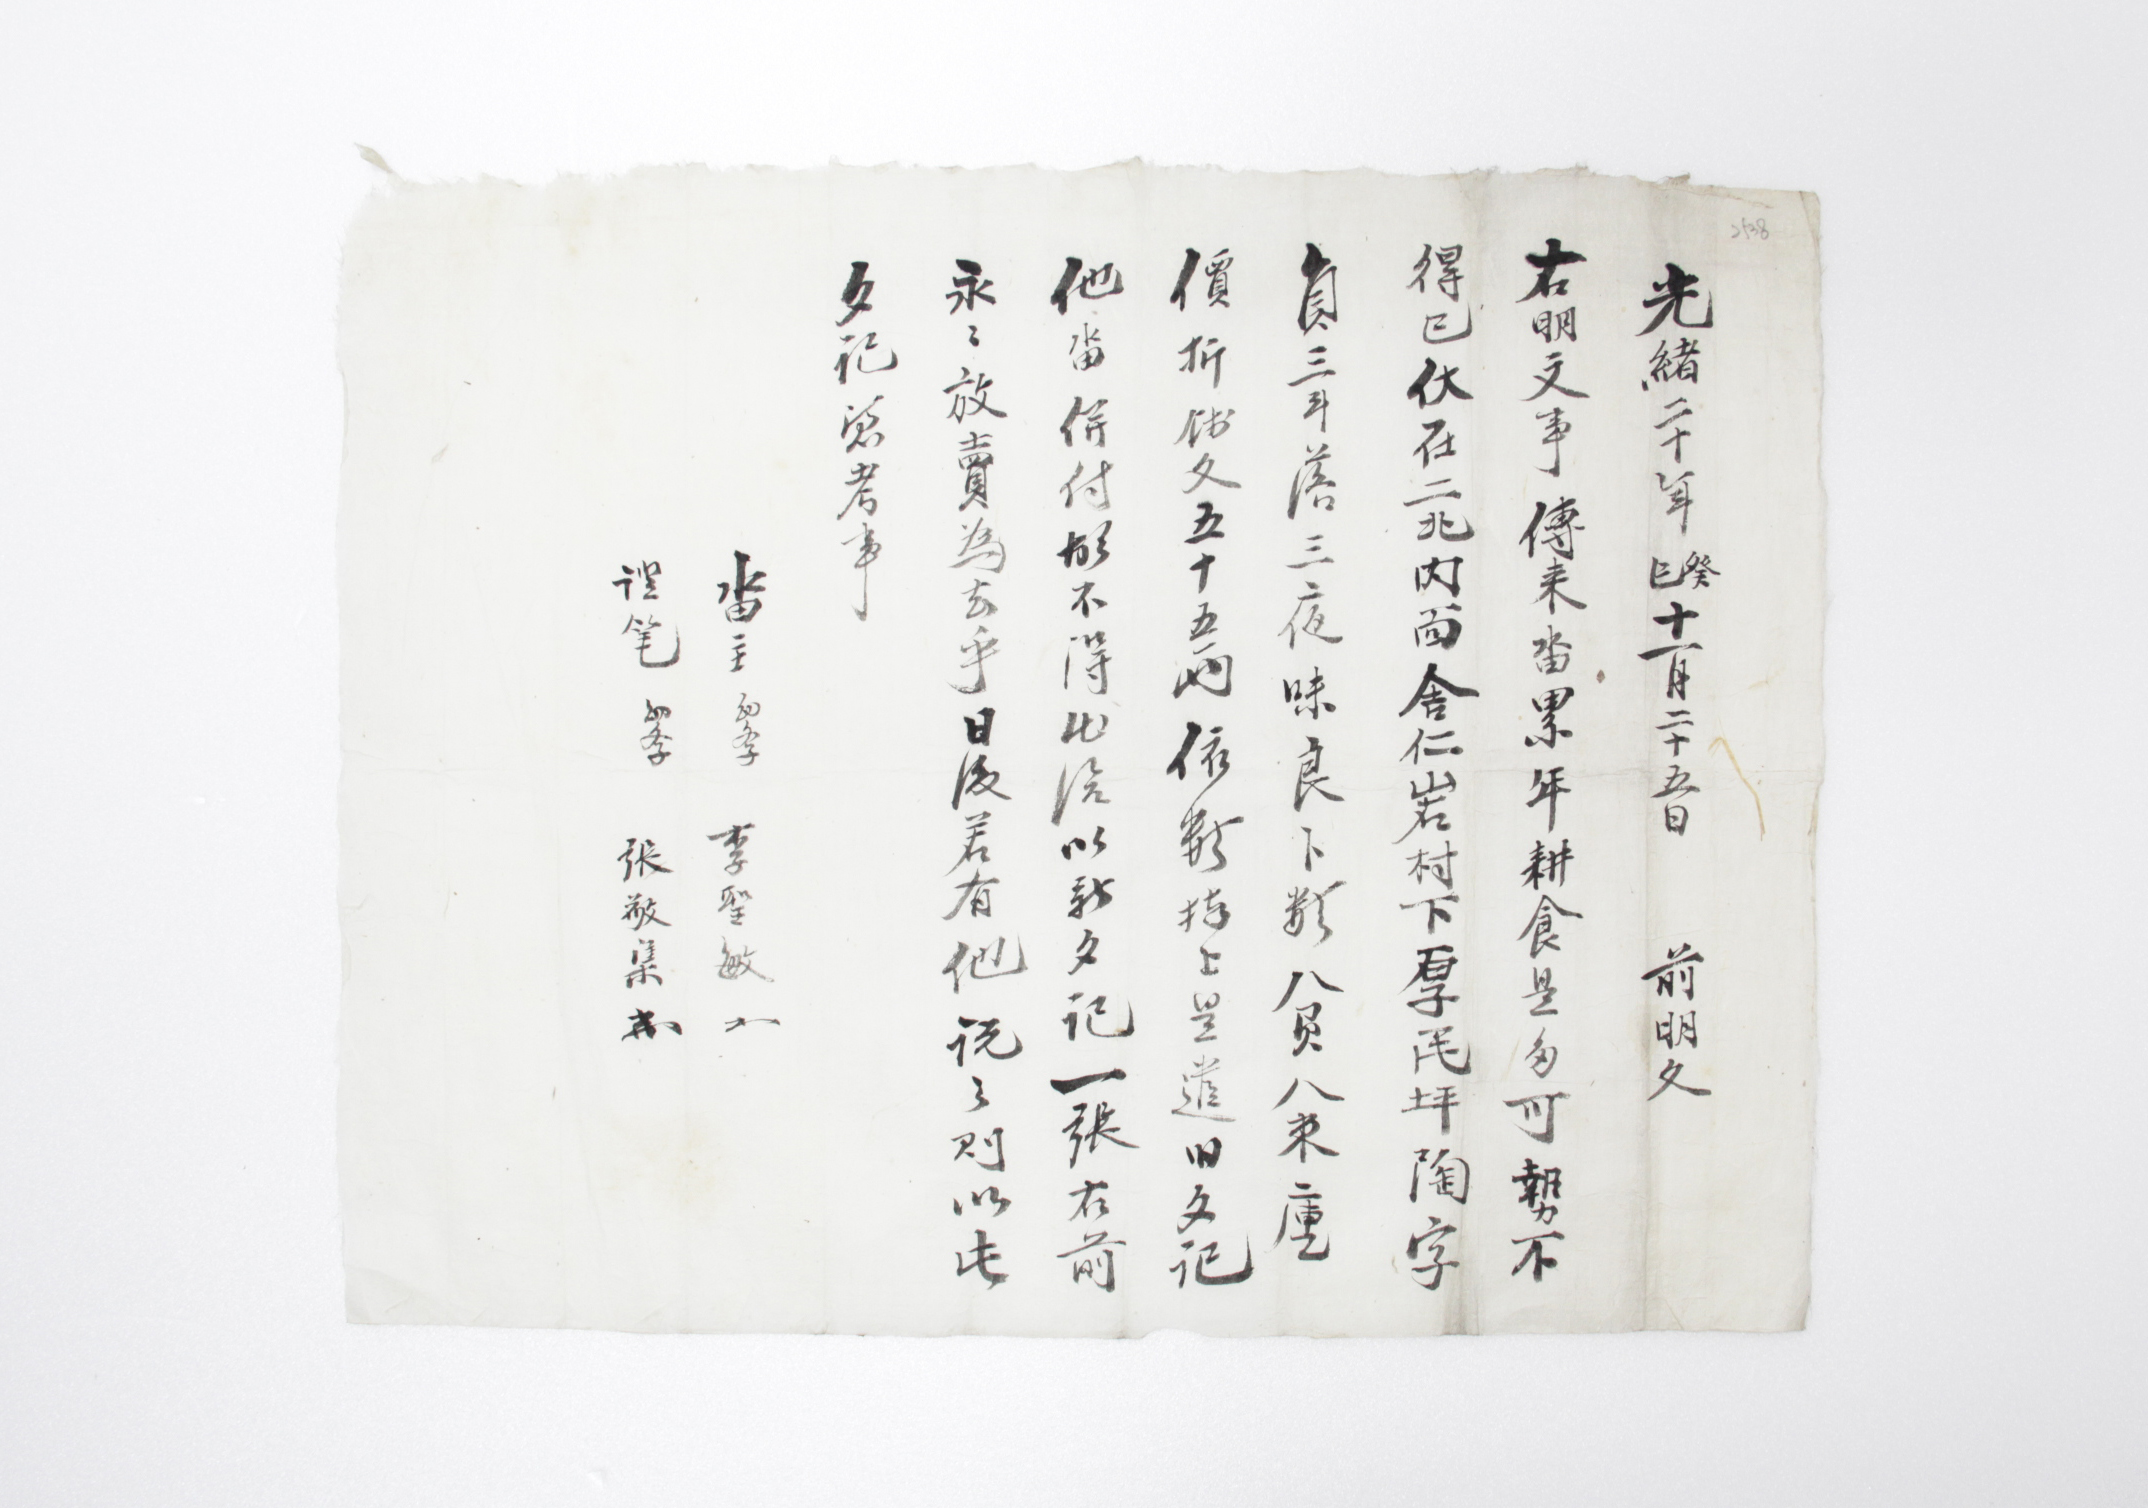 2538
光緒二十年癸巳十一月二十五日 前明文
右明文事傳来畓累年耕食是多可勢不
得已伏在二北内面舍仁岩村下厚毛坪陶字
員三斗落三夜味良卜數八負八束廛
價折錢文五十五兩依數捧上是遣旧文記
他畓併付故不得出給以新文記一張右前
永〻放賣為去乎日後若有他說之則以此
文記憑考事
畓主 幼學 李聖敏
證笔 幼學 張敬集